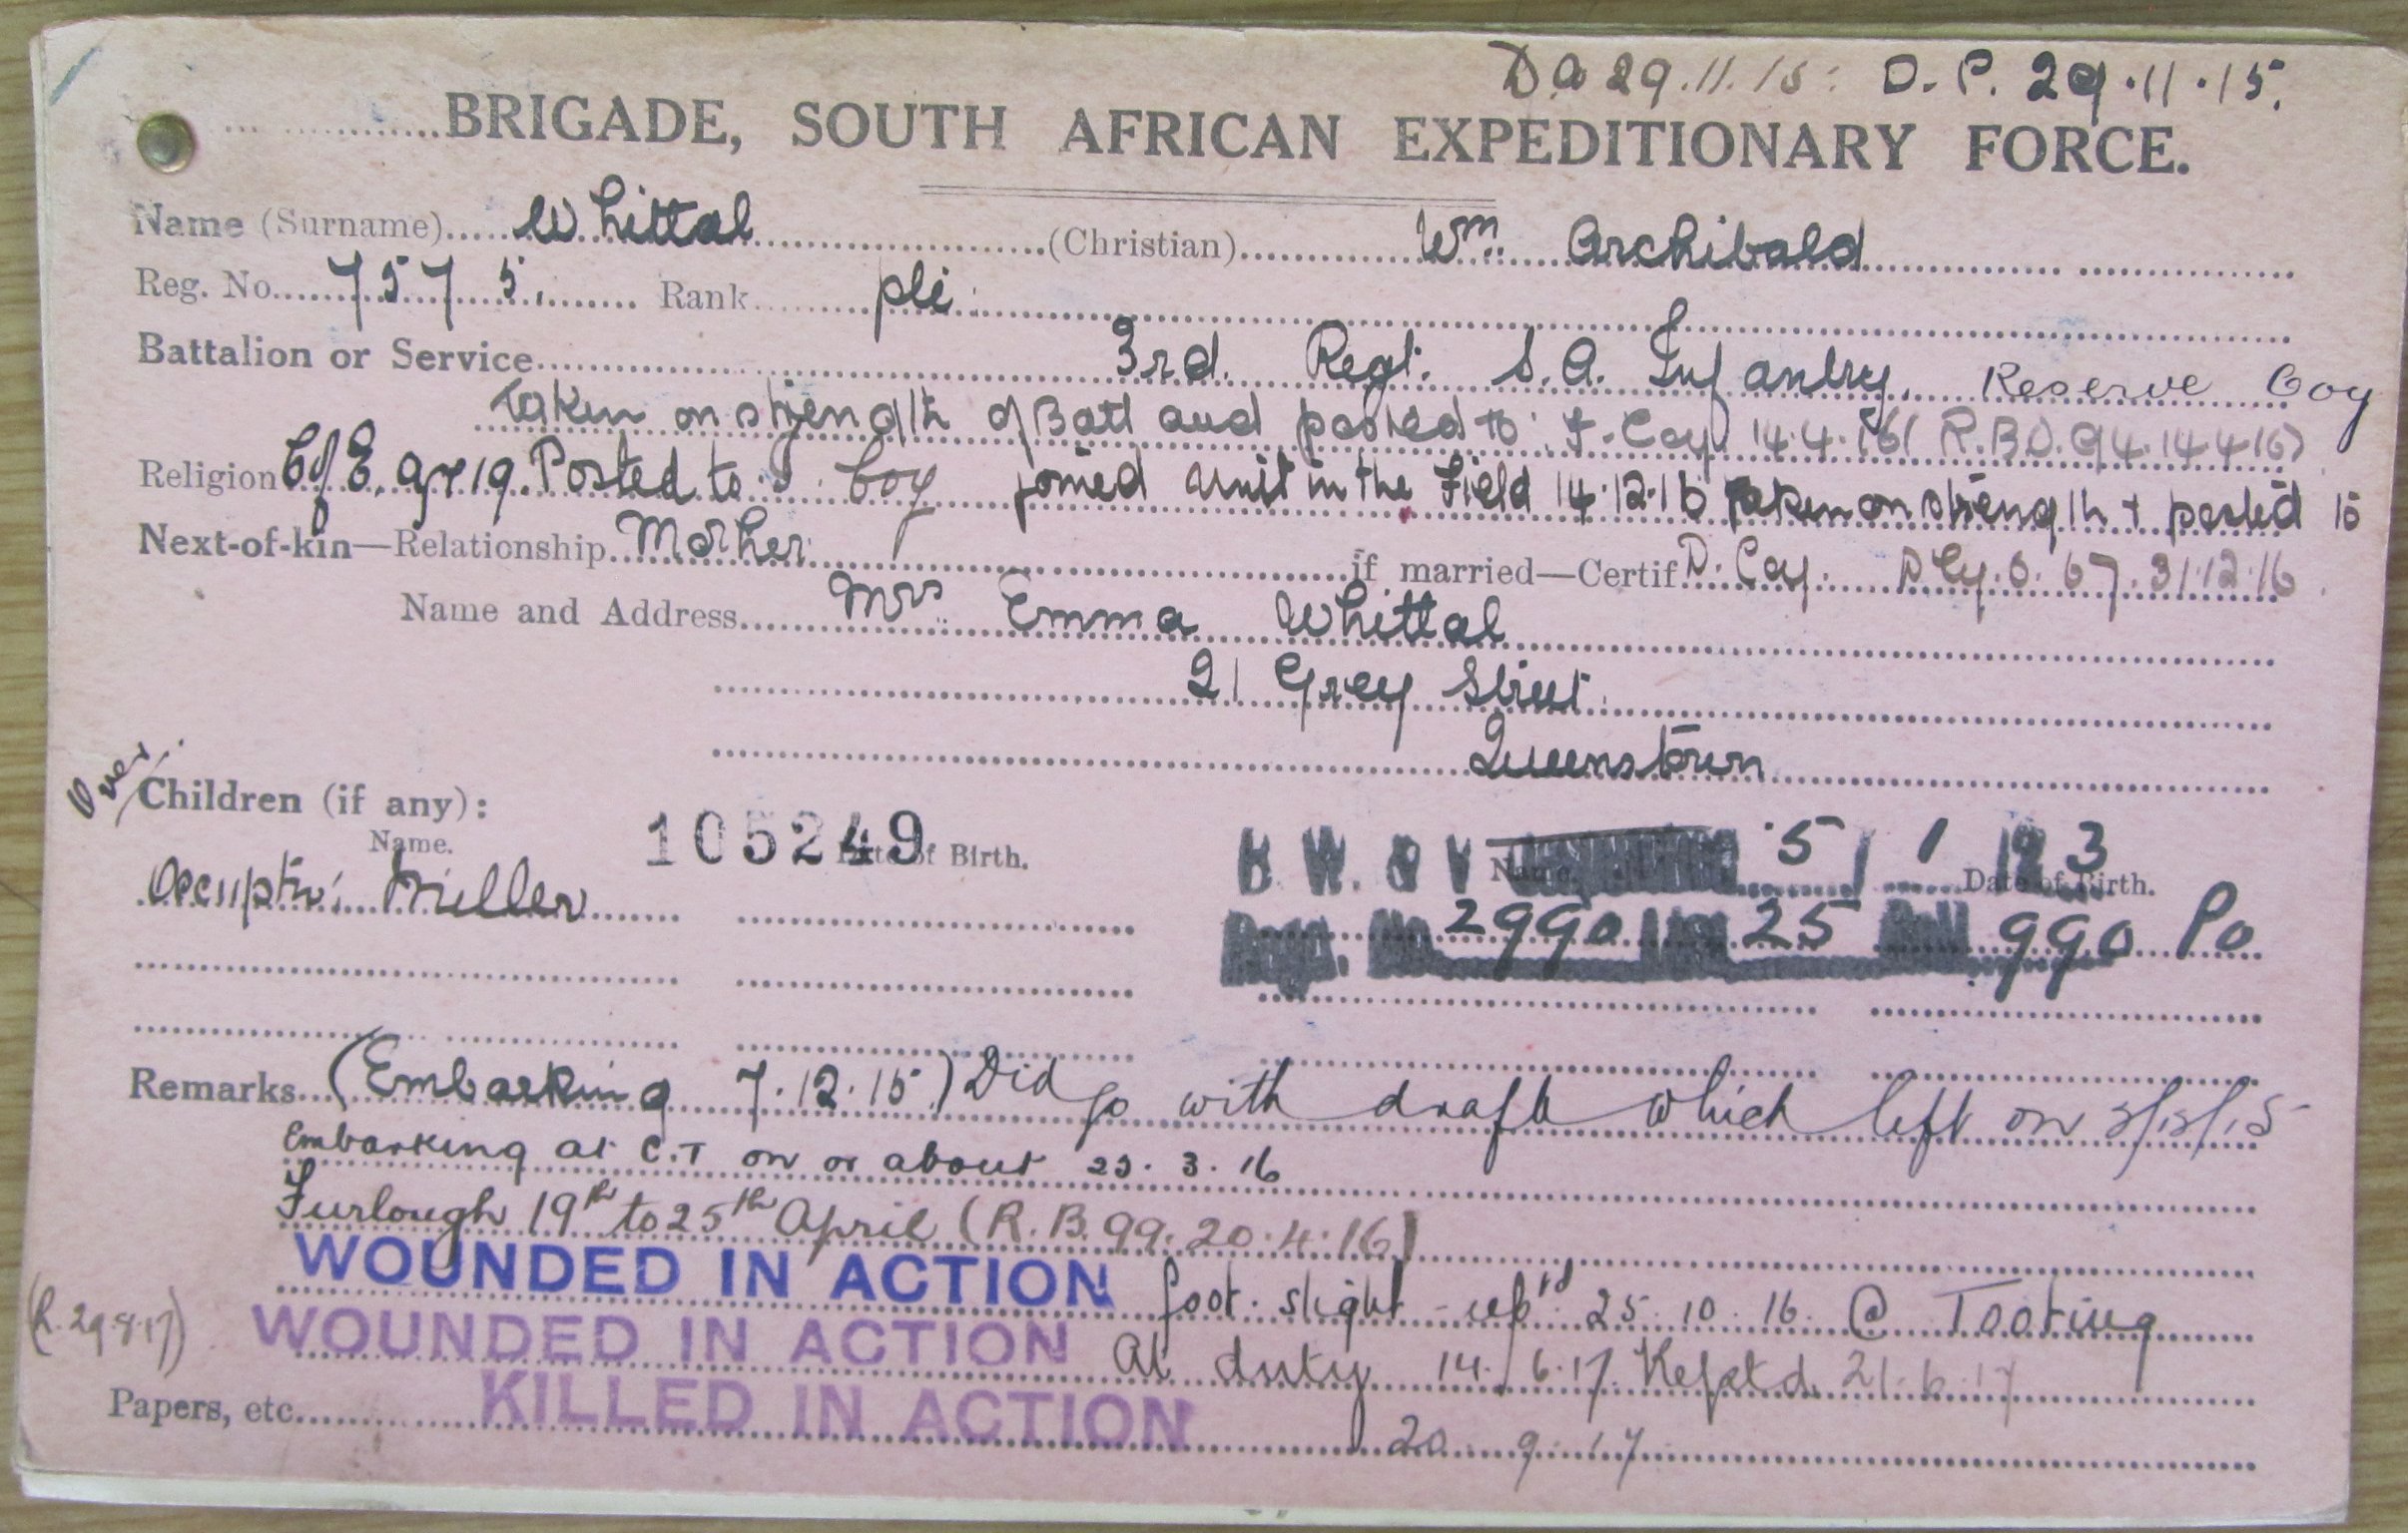 D.A 29.11.15: D.P. 29.11.15.
BRIGADE, SOUTH AFRICAN EXPEDITIONARY FORCE.
Name (Surname) Whittal (Christian) Wm. Archibald
Reg. No. 7575. Rank pte.
Battalion or Service 3rd. Regt. S.A. Infantry. Reserve Coy
Taken on strength of Batt and posted to F. Coy 14.4.16 (R.B.O. 94. 14 4 16)
Religion C of E. age 19. Posted to Coy joined unit in the Field 14.12.16 Taken on strength + posted to
Next-of-kin—Relationship Mother if married—Certif. D. Coy. 67. 31.12.16
Name and Address Mrs Emma Whittal
21 Grey Street
Queenstown
Over
Children (if any):
Name. 105249 Date of Birth. B. W. & V Name. 5 / 1 / 23 Date of Birth.
Occuptn: Miller 2990 25 990 Po
Remarks (Embarking 7.12.15) Did go with draft which left on
Embarking at C.T on or about 23.3.16
Furlough 19th to 25th April (R.B. 99. 20.4.16)
WOUNDED IN ACTION foot. slight - 25.10.16. @ Tooting
(R. 29.8.17) WOUNDED IN ACTION At duty 14.6.17. Reptd. 21.6.17
Papers, etc. KILLED IN ACTION 20.9.17